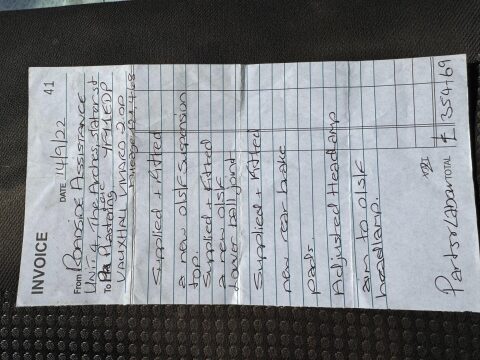 41
INVOICE
DATE 14/9/22
From Roadside Assistance
Unit 4 The Arches, Slater st
To Plastering YF11EDP
VAUXHALL VIVARO 2.0D
Mileage 121,468
Supplied + Fitted
a new o/s/f suspension
top.
Supplied + Fitted
a new o/s/f
Lower ball joint
Supplied + Fitted
new rear brake
pads.
Adjusted Headlamp
aim to o/s/f
headlamp.
Parts + Labour TOTAL £ 354.69